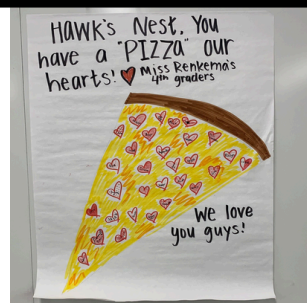 Hawk's Nest, You
have a "PIZZA" our
hearts! Miss Renkema's
4th graders
We love
you guys!